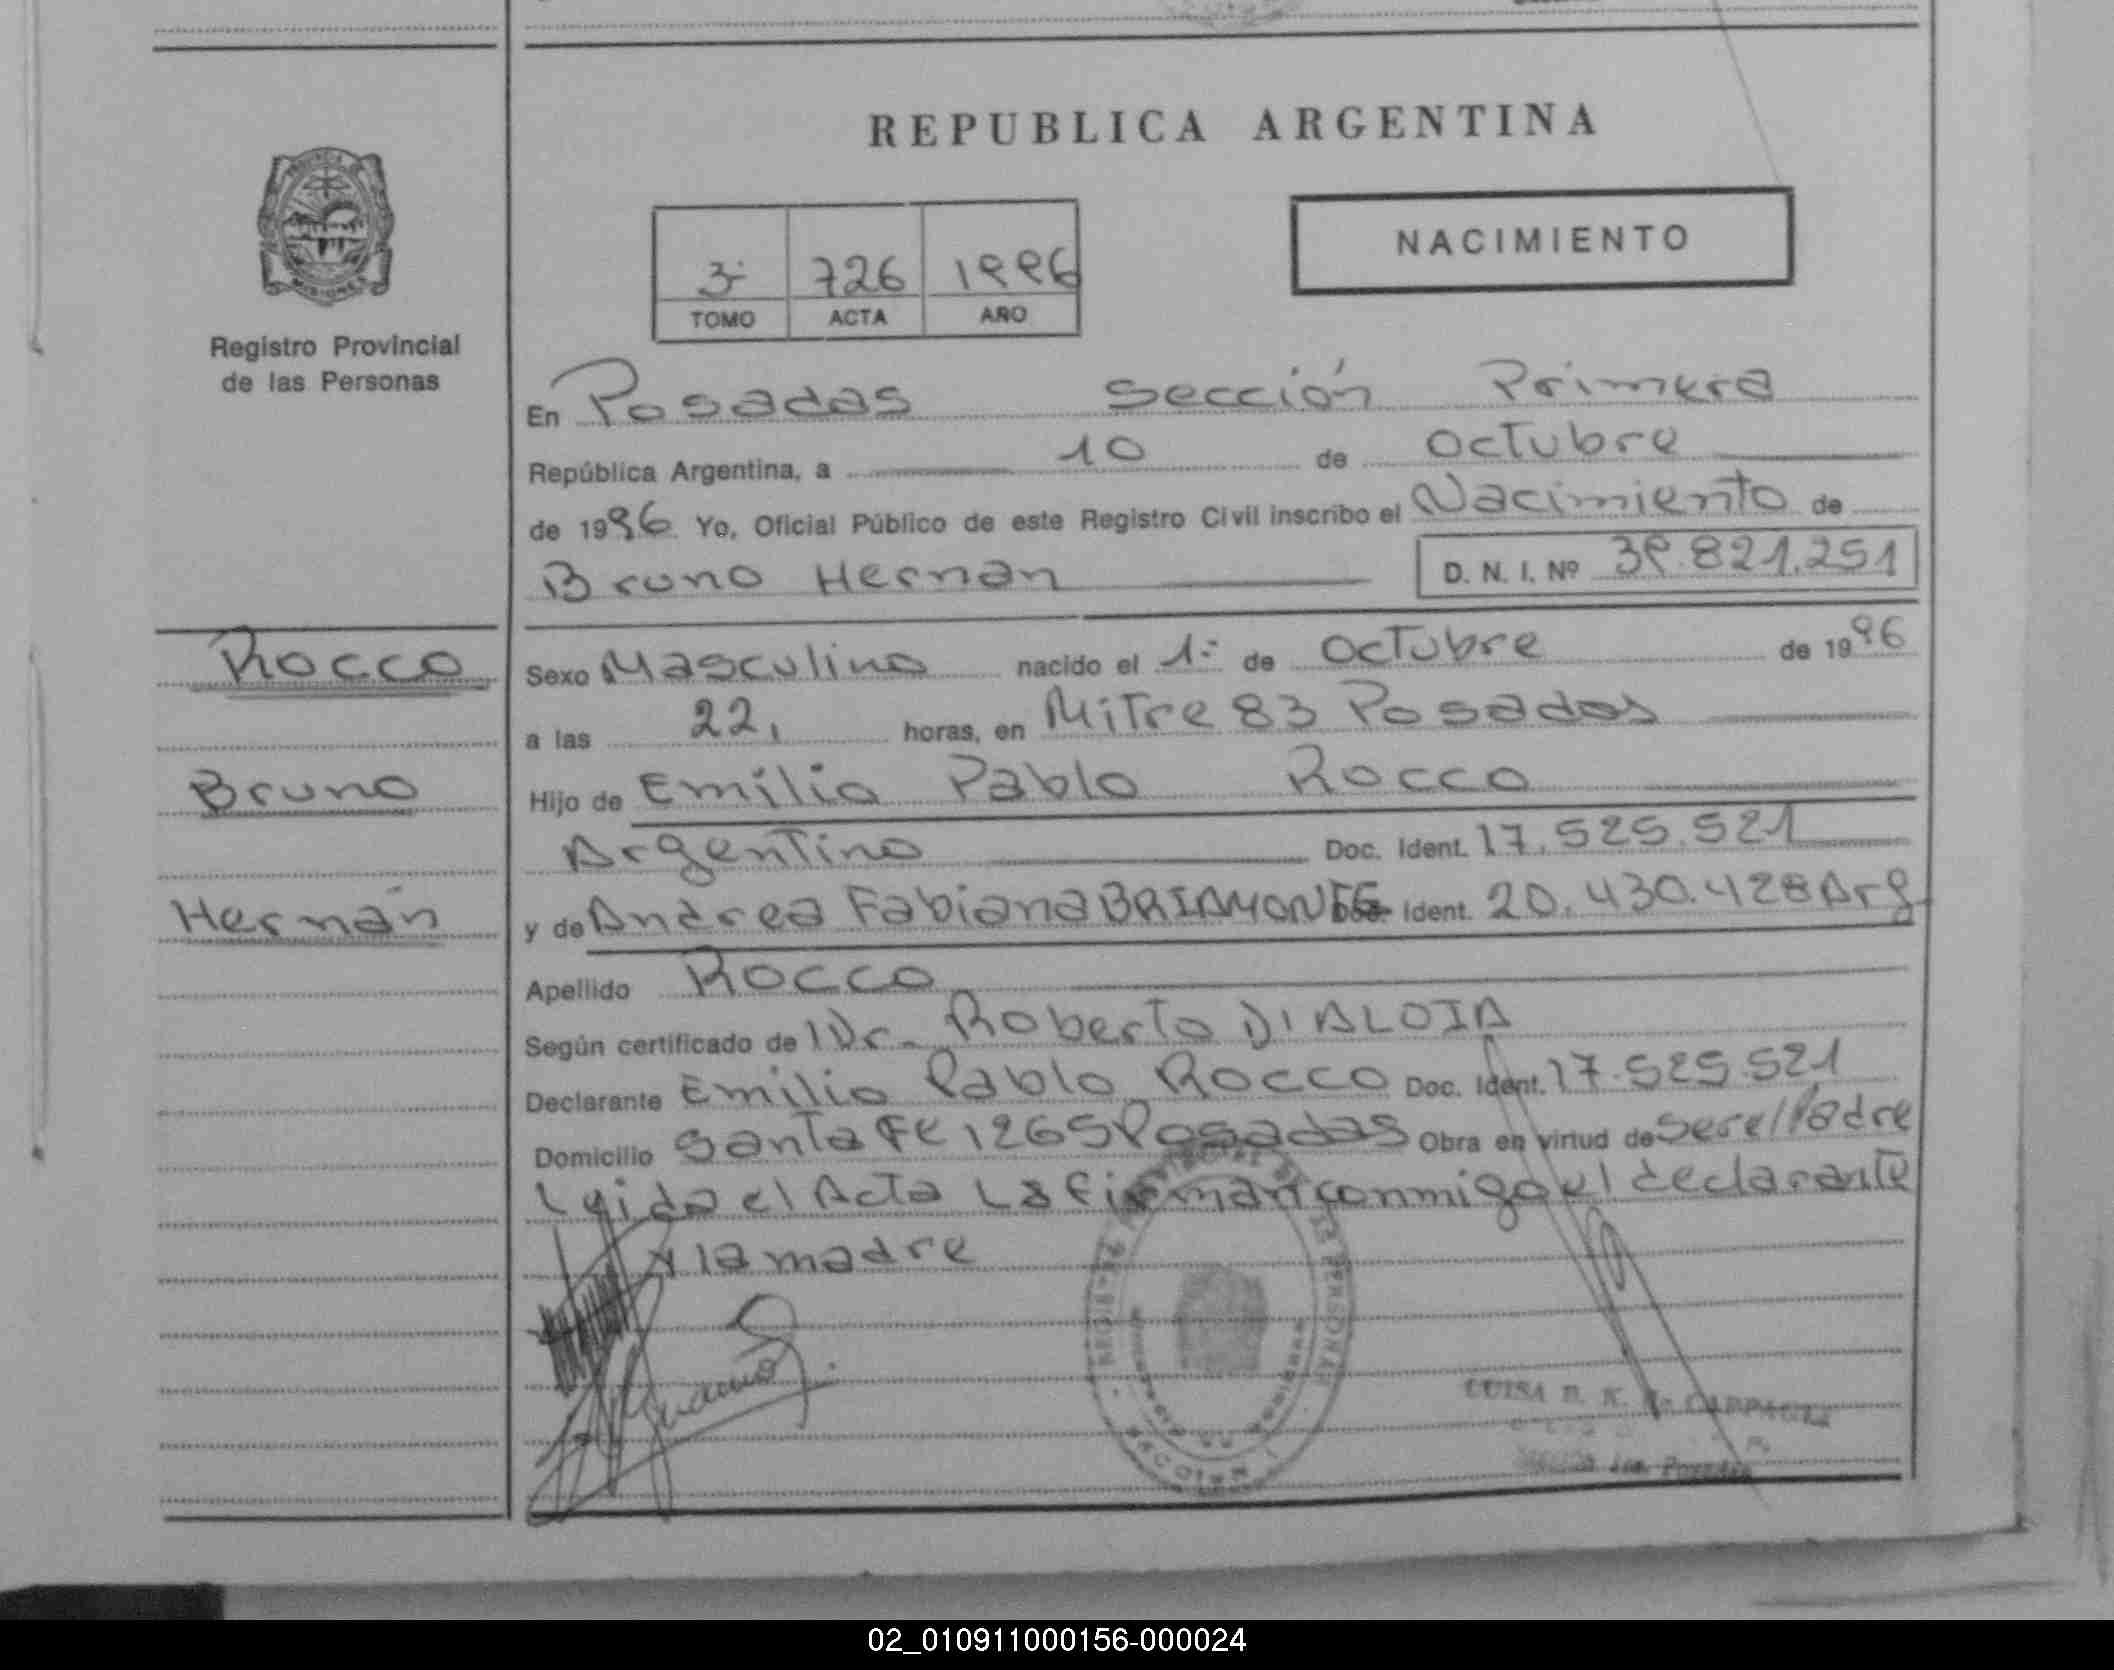 REPUBLICA ARGENTINA
PROVINCIA DE
MISIONES
Registro Provincial
de las Personas
NACIMIENTO
3- 726 1996
TOMO ACTA AÑO
En Posadas Sección Primera
República Argentina, a 10 de Octubre
de 1996 Yo, Oficial Público de este Registro Civil inscribo el Nacimiento de
Bruno Hernan D. N. I. Nº 39.821.251
Rocco
Bruno
Hernán
Sexo Masculino nacido el 1- de Octubre de 1996
a las 22, horas, en Mitre 83 Posadas
Hijo de Emilio Pablo Rocco
Argentino Doc. Ident. 17.525.521
y de Andrea Fabiana BRIAMONTE Doc. Ident. 20.430.428 Arg
Apellido Rocco
Según certificado de Dr. Roberto D'ALOIA
Declarante Emilio Pablo Rocco Doc. Ident. 17.525.521
Domicilio Santa Fe 1265 Posadas Obra en virtud de ser el Padre
Lyida el Acta La firman conmigo el declarante
y la madre
LUISA E. K. de
02_010911000156-000024